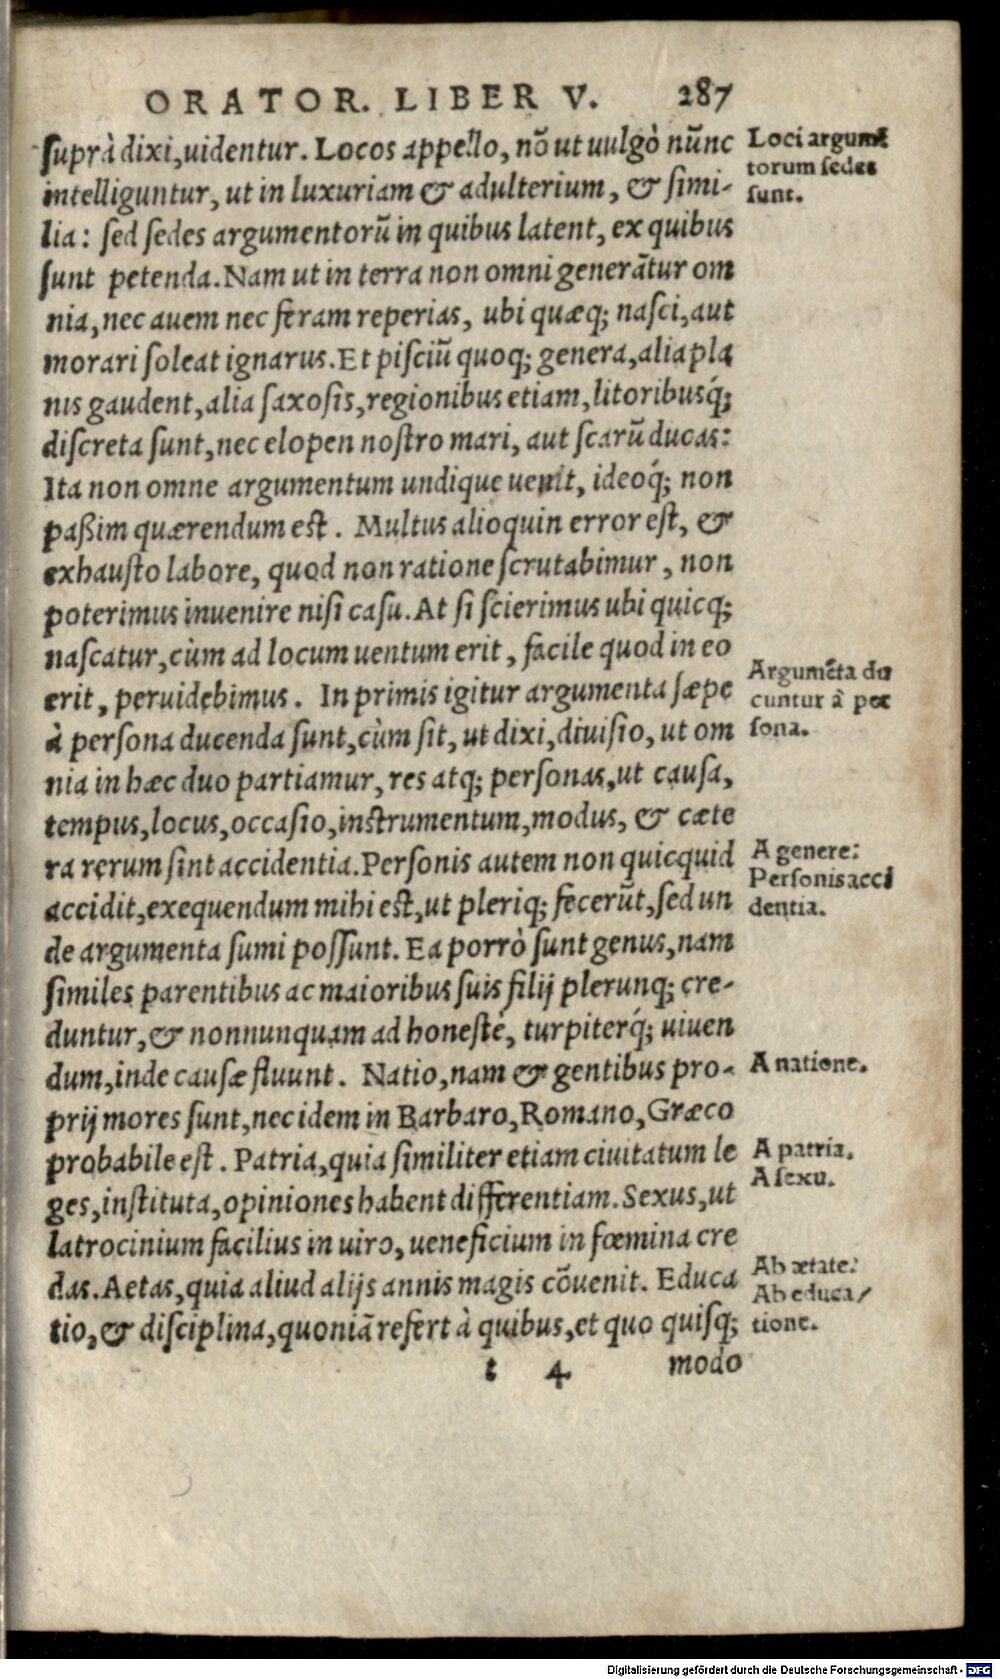 ORATOR. LIBER V. 287
suprà dixi, uidentur. Locos appello, nõ ut uulgò nũnc
intelliguntur, ut in luxuriam & adulterium, & simi-
lia: sed sedes argumentorũ in quibus latent, ex quibus
sunt petenda. Nam ut in terra non omni generãtur om
nia, nec auem nec feram reperias, ubi quæq; nasci, aut
morari soleat ignarus. Et pisciũ quoq; genera, alia pla
nis gaudent, alia saxosis, regionibus etiam, litoribusq́;
discreta sunt, nec elopen nostro mari, aut scarũ ducas:
Ita non omne argumentum undique uenit, ideoq́; non
paßim quærendum est. Multus alioquin error est, &
exhausto labore, quod non ratione scrutabimur, non
poterimus inuenire nisi casu. At si scierimus ubi quicq;
nascatur, cùm ad locum uentum erit, facile quod in eo
erit, peruidebimus. In primis igitur argumenta sæpe
à persona ducenda sunt, cùm sit, ut dixi, diuisio, ut om
nia in hæc duo partiamur, res atq; personas, ut causa,
tempus, locus, occasio, instrumentum, modus, & cæte
ra rerum sint accidentia. Personis autem non quicquid
accidit, exequendum mihi est, ut pleriq; fecerũt, sed un
de argumenta sumi possunt. Ea porrò sunt genus, nam
similes parentibus ac maioribus suis filij plerunq; cre-
duntur, & nonnunquam ad honestè, turpiterq́; uiuen
dum, inde causæ fluunt. Natio, nam & gentibus pro-
prij mores sunt, nec idem in Barbaro, Romano, Græco
probabile est. Patria, quia similiter etiam ciuitatum le
ges, instituta, opiniones habent differentiam. Sexus, ut
latrocinium facilius in uiro, ueneficium in fœmina cre
das. Aetas, quia aliud alijs annis magis cõuenit. Educa
tio, & disciplina, quoniã refert à quibus, et quo quisq;
t 4 modo
Loci argumẽ
torum sedes
sunt.
Argumẽta du
cuntur à per
sona.
A genere:
Personis acci
dentia.
A natione.
A patria.
A sexu.
Ab ætate:
Ab educa/
tione.
Digitalisierung gefördert durch die Deutsche Forschungsgemeinschaft - DFG